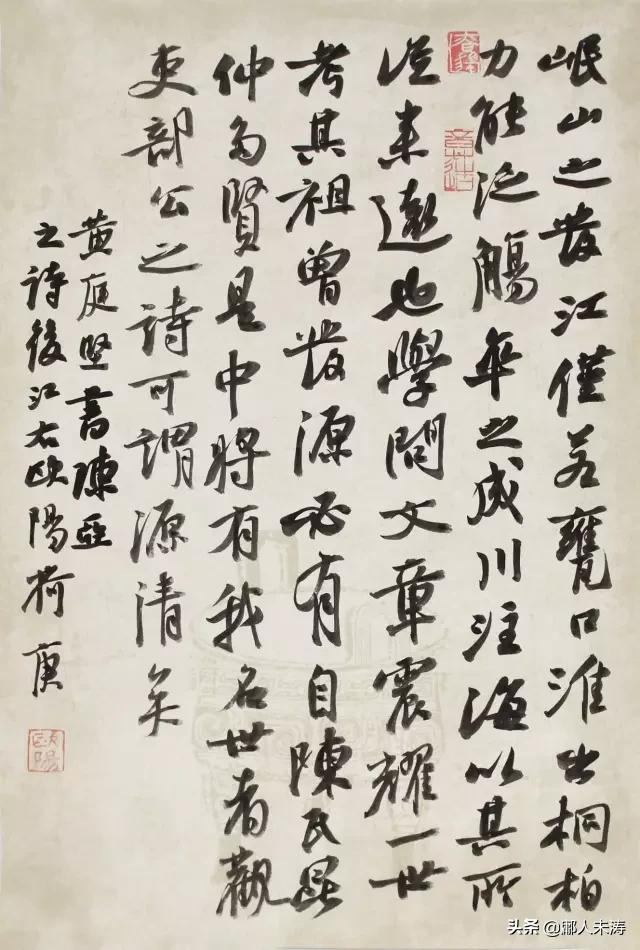 岷山之發江僅若甕口淮出桐柏
力能泛觴卒之成川注海以其所
從来遠也學問文章震耀一世
考其祖曾發源必有自陳氏昆
仲多賢是中將有我名世者觀
吏部公之詩可謂源清矣
黄庭堅書陳亞
之詩後江右歐陽荷庚
歐陽
头条 @鄉人未涛